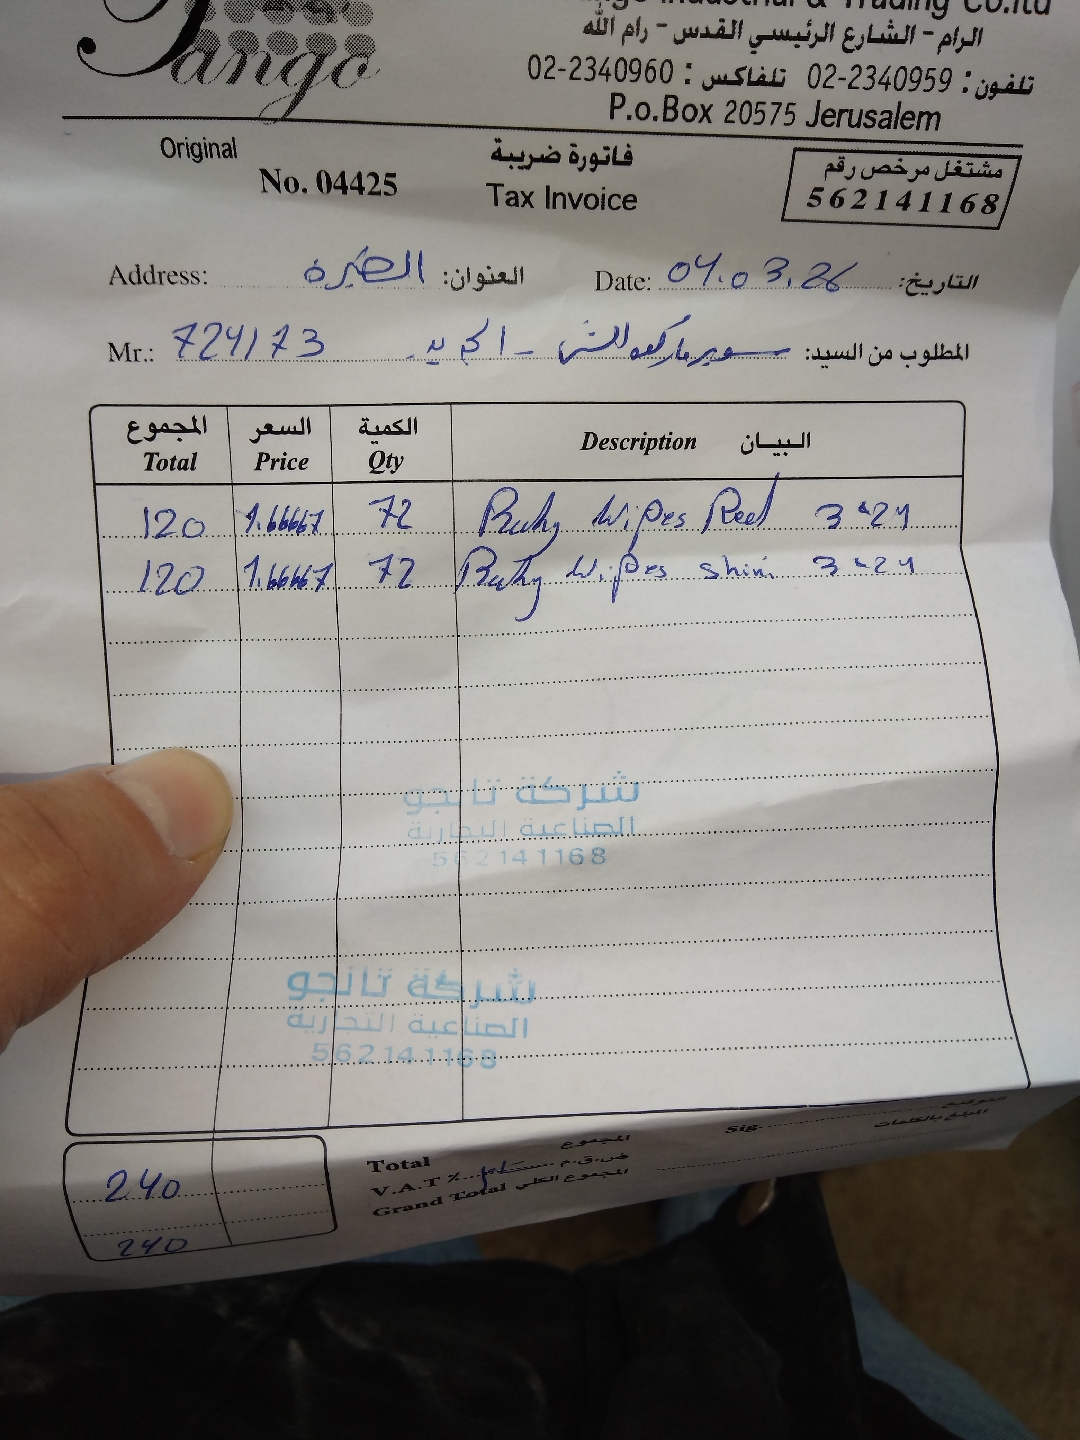 Tango
Industrial & Trading Co.ltd
الرام - الشارع الرئيسي القدس - رام الله
تلفون: 02-2340959 تلفاكس: 02-2340960
P.o.Box 20575 Jerusalem
Original
No. 04425
فاتورة ضريبة
Tax Invoice
مشتغل مرخص رقم
562141168
Address: العنوان:
Date: 04.03.26 التاريخ:
Mr.: 724173 المطلوب من السيد: سوبر ماركت
المجموع السعر الكمية البيان
Total Price Qty Description
120 1.66667 72 Baby Wipes Red 3*24
120 1.66667 72 Baby Wipes 3*24
شركة تانجو
الصناعية التجارية
562141168
شركة تانجو
الصناعية التجارية
562141168
240 Total المجموع
V.A.T % ض.ق.م
240 Grand Total المجموع الكلي
Sig. التوقيع
المبلغ بالكلمات